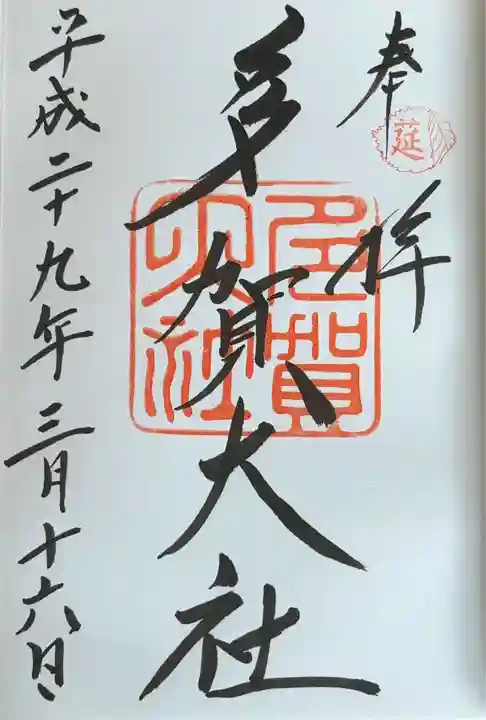 奉拝
莚
多賀大社
多賀大社
平成二十九年三月十六日